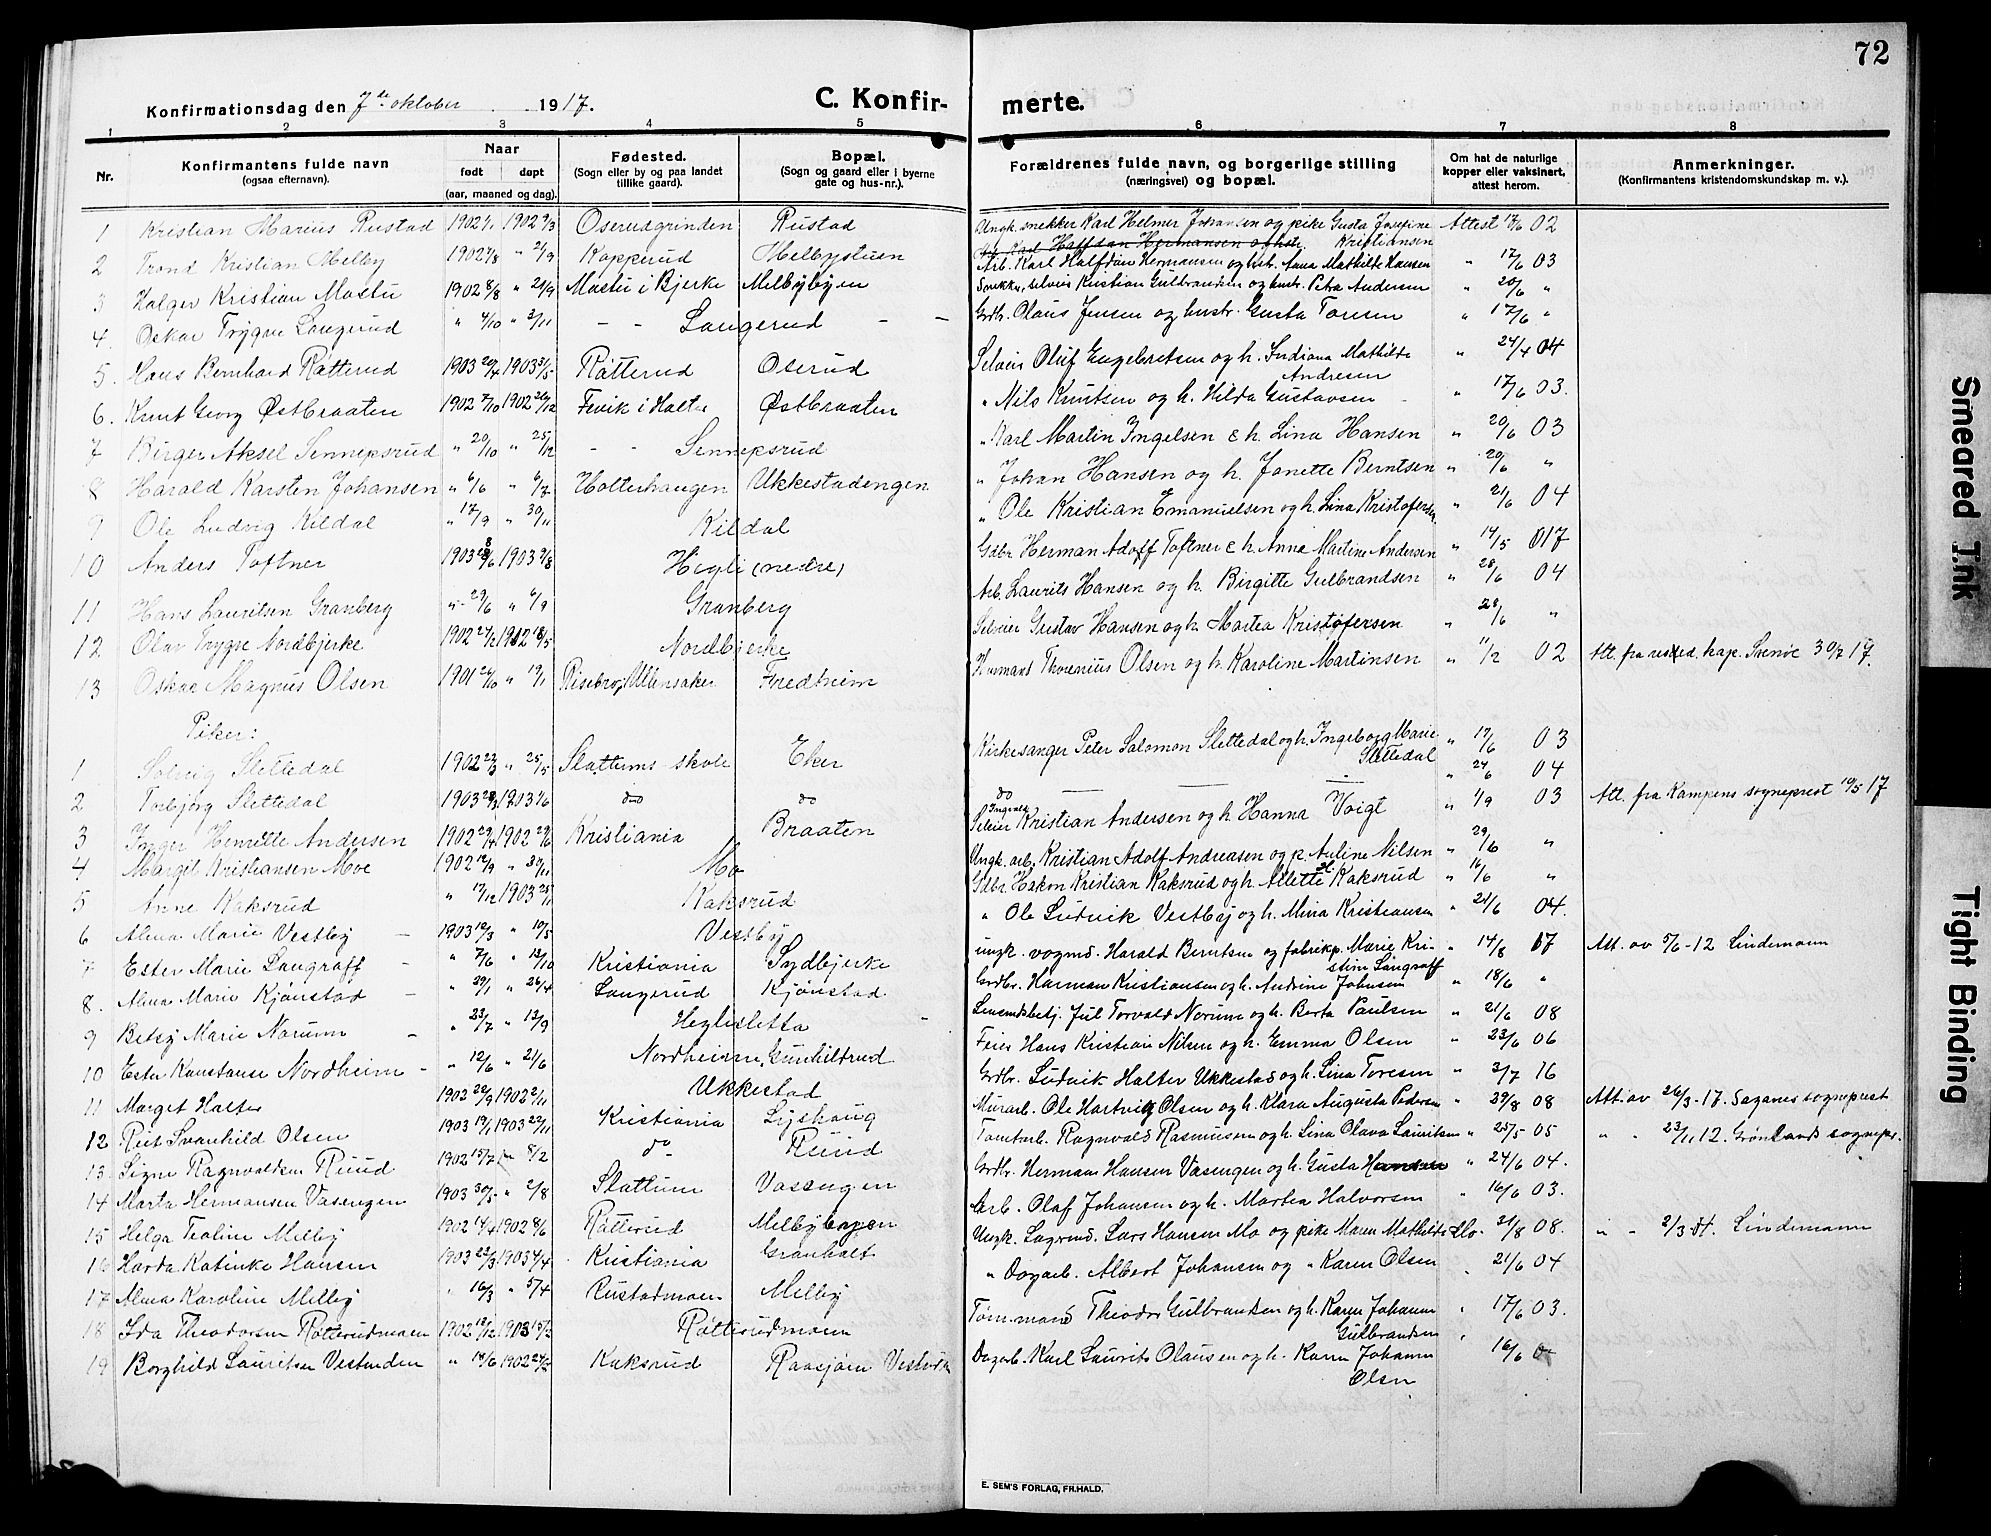 72
Konfirmationsdag den 7de oktober 1917. C. Konfir- merte.
1 2 3 4 5 6 7 8
Nr. Konfirmantens fulde navn (ogsaa efternavn). Naar født døpt (aar, maaned og dag). Fødested. (Sogn eller by og paa landet tillike gaard). Bopæl. (Sogn og gaard eller i byerne gate og hus-nr.). Forældrenes fulde navn, og borgerlige stilling (næringsvei) og bopæl. Om hat de naturlige kopper eller vaksinert, attest herom. Anmerkninger. (Konfirmantens kristendomskundskap m. v.).
1 Kristian Marius Rustad 1902 1902 9/3 Oserudgrinden Rustad Ungk. snekker Karl Helmer Johansen og pike Gusta Josefine Kristiansen Attest 02
2 Trond Kristian Melby 1902 " 2/9 Kopperud Melbystuen Arb. Karl Halfdan Hermansen og hstr. Anna Mathilde Hansen " 17/6 03
3 Holger Kristian Mastu 1902 8/8 " 21/9 Mastu i Bjerke Melbybyen Snekker, selveier Kristian Guldbrandsen og hustr. Petra Andersen " 20/6 "
4. Oskar Trygve Langerud " 4/10 " 2/11 - - Langerud - - Grdbr. Olaus Jensen og hustr. Gusta Toresen " 17/6 "
5. Hans Bernhard Råtterud 1903 20/4 1903 31/5 Råtterud Oserud Selveier Oluf Engebretsen og h. Indiana Mathilde Andresen " 24/4 04
6. Knut Georg Østbraaten 1902 7/10 1902 26/12 Fevik i Holter Østbraaten " Nils Knutsen og h. Hilda Gustavsen " 17/6 03.
7 Birger Aksel Sennepsrud " 20/10 " 25/12 - - Sennepsrud " Karl Martin Ingelsen & h. Lina Hansen " 20/6 03
8 Harald Karsten Johansen " 6/6 " 6/7 Holterhaugen Ukkestadengen " Johan Hansen og h. Janette Berntsen " 20/6 "
9 Ole Ludvig Kildal " 17/9 " 30/11 Kildal " Ole Kristian Emanuelsen og h. Lina Kristofersen " 21/6 04
10 Anders Toftner 1903 1903 9/8 Hegli (nedre) Gdbr. Herman Adolf Toftner & h. Anna Martine Andersen " 14/5 017
11 Hans Lauritsen Granberg " 29/6 " 6/9 Granberg Arb. Laurits Hansen og h. Birgitte Gulbrandsen " 28/6 04
12 Olav Trygve Nordbjerke 1902 18/5 Nordbjerke Selveier Gustav Hansen og h. Martea Kristofersen " 28/6 "
13 Oskar Magnus Olsen 1901 26/10 " 19/1 Risebro, Ullensaker Fredheim Husmand Thorenius Olsen og h. Karoline Martinsen " 11/2 02 Att. fra resed. kap. Svenøe 30/7 17.
Piker:
1 Solveig Slettedal 1902 23/3 " 25/5 Slattums skole Eker Kirkesanger Peter Salomon Slettedal og h. Ingeborg Marie Slettedal " 17/6 03
2 Torbjørg Slettedal 1903 do do do " 24/6 04
3 Inger Henrette Andersen 1902 29/4 1902 29/6 Kristiania Braaten Selveier Ingvald Kristian Andersen og h. Hanna Voigt " 1/9 03 Att. fra Kampens sogneprest 10/5 17
4 Margit Kristiansen Moe 1902 12/9 " 30/11 Mo Ungk. arb. Kristian Adolf Andreasen og p. Auline Nilsen " 29/6 "
5 Anne Kaksrud " 17/12 1903 25/1 Kaksrud Gdbr. Hakon Kristian Kaksrud og h. Allette Kaksrud " 16/6 "
6 Alma Marie Vestby 1903 12/3 " 10/5 Vestby " Ole Ludvik Vestby og h. Mina Kristiansen " 21/6 04.
7 Ester Marie Langraff " 7/6 " 12/10 Kristiania Sydbjerke ungk. vognmd. Harald Berntsen og fabrikp. Marie Kristine Langraff " 14/8 17 Att. av 5/6-12 Lindemann
8. Alma Marie Kjønstad " 29/1 " 26/4 Langerud Kjønstad Grdbr. Herman Kristiansen og h. Andrine Johnsen " 18/6 "
9 Betsy Marie Norum " 23/7 " 13/9 Heglisletta Lensmdsbetj. Jul Torvald Norum og h. Berta Paulsen " 21/6 08
10 Ester Konstanse Nordheim " 12/6 " 21/6 Nordheim, Gunhildrud Feier Hans Kristian Nilsen og h. Emma Olsen " 23/6 06
11 Marget Holter 1902 22/9 1902 2/11 Ukkestad Grdbr. Ludvik Holter Ukkestad og h. Lina Toresen " 3/7 16
12 Rut Svanhild Olsen 1903 19/1 1903 22/11 Kristiania Lyshaug Murarb. Ole Hartvig Olsen og h. Klara Augusta Pedersen " 29/8 08 Att. av 26/3-17. Sagenes sogneprest
13 Signe Ragnvaldsen Ruud 1902 15/7 8/2 do Ruud Tomtarb. Ragnvald Rasmussen og h. Lina Olava Lauritsen " 25/5 05 " " 23/11 12. Grønlands sognepr.
14 Marta Hermansen Vasengen 1903 30/5 " 2/8 Slattum Vasengen Grdbr. Herman Hansen Vasengen og h. Gusta Hansen " 24/6 04.
15 Helga Tealine Melby 1902 14/4 1902 8/6 Råtterud Melbybyen Arb. Olaf Johansen og h. Martea Halvorsen " 16/6 03.
16 Harda Katinke Hansen 1903 23/3 1903 4/4 Kristiania Granholt Ungk. Sagmd. Lars Hansen Mo og pike Maren Mathilde Mo. " 31/8 08. " - 2/3 Lindemann
17 Alma Karoline Melby " 16/3 " 5/4 Rustadmoen Melby " Dagarb. Albert Johansen og " Karen Olsen 21/6 04
18 Ida Theodorsen Råtterudmoen 1902 12/12 1903 15/2 Råtterudmoen Tømmermand Theodor Gulbrandsen og h. Karen Johanne Gulbrandsen " 17/6 03.
19 Borghild Lauritsen Vestenden " 14/6 1902 Kaksrud Raasjøen Vestenden Dagarb. Karl Laurits Olausen og h. Karen Johanne Olsen " 16/6
E. SEM'S FORLAG, FR.HALD.
Smeared Ink
Tight Binding